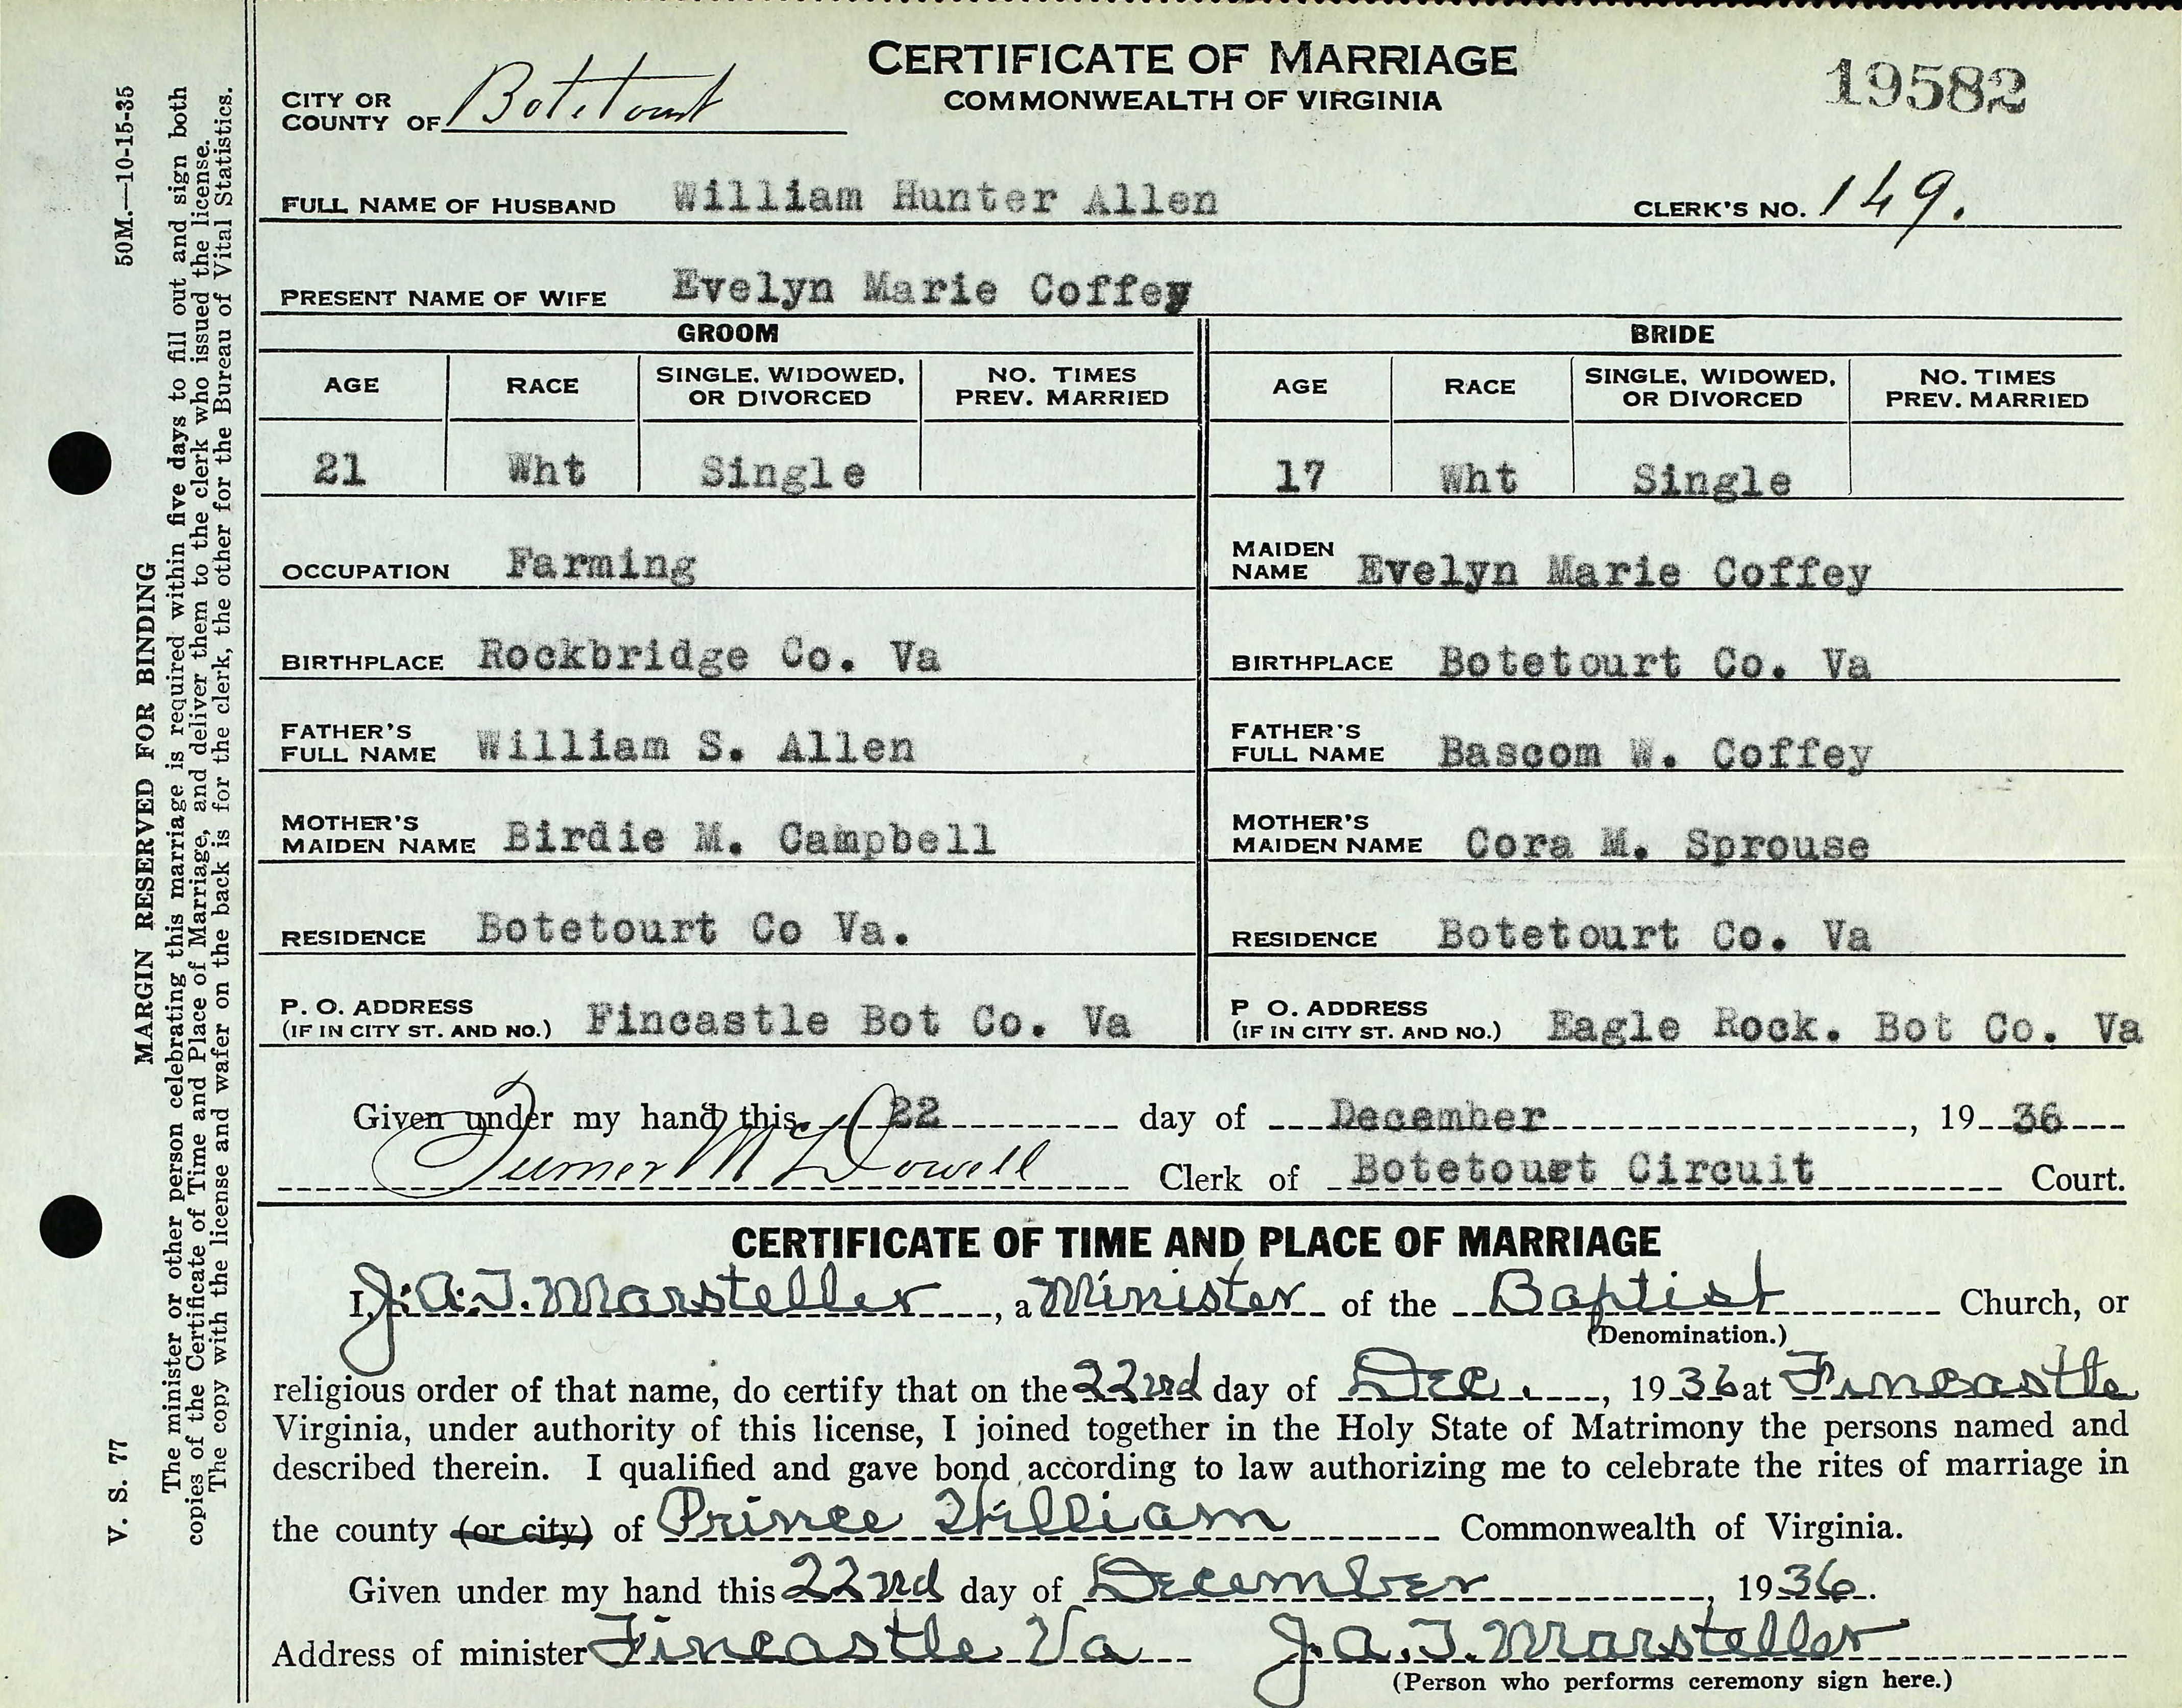 CERTIFICATE OF MARRIAGE
COMMONWEALTH OF VIRGINIA
19582
CITY OR COUNTY OF Botetourt
FULL NAME OF HUSBAND William Hunter Allen CLERK'S NO. 149.
PRESENT NAME OF WIFE Evelyn Marie Coffey
GROOM BRIDE
AGE RACE SINGLE, WIDOWED, OR DIVORCED NO. TIMES PREV. MARRIED AGE RACE SINGLE, WIDOWED, OR DIVORCED NO. TIMES PREV. MARRIED
21 Wht Single 17 Wht Single
OCCUPATION Farming MAIDEN NAME Evelyn Marie Coffey
BIRTHPLACE Rockbridge Co. Va BIRTHPLACE Botetourt Co. Va
FATHER'S FULL NAME William S. Allen FATHER'S FULL NAME Bascom W. Coffey
MOTHER'S MAIDEN NAME Birdie M. Campbell MOTHER'S MAIDEN NAME Cora M. Sprouse
RESIDENCE Botetourt Co Va. RESIDENCE Botetourt Co. Va
P. O. ADDRESS (IF IN CITY ST. AND NO.) Fincastle Bot Co. Va P O. ADDRESS (IF IN CITY ST. AND NO.) Eagle Rock. Bot Co. Va
Given under my hand this 22 day of December, 1936
Turner McDowell Clerk of Botetourt Circuit Court.
CERTIFICATE OF TIME AND PLACE OF MARRIAGE
I, J. A. T. Marsteller, a Minister of the Baptist Church, or
(Denomination.)
religious order of that name, do certify that on the 22nd day of Dec., 1936 at Fincastle
Virginia, under authority of this license, I joined together in the Holy State of Matrimony the persons named and
described therein. I qualified and gave bond according to law authorizing me to celebrate the rites of marriage in
the county (or city) of Prince William Commonwealth of Virginia.
Given under my hand this 22nd day of December, 1936.
Address of minister Fincastle Va J. A. T. Marsteller
(Person who performs ceremony sign here.)
V. S. 77 50M.—10-15-35
MARGIN RESERVED FOR BINDING
The minister or other person celebrating this marriage is required within five days to fill out and sign both
copies of the Certificate of Time and Place of Marriage, and deliver them to the clerk who issued the license.
The copy with the license and wafer on the back is for the clerk, the other for the Bureau of Vital Statistics.